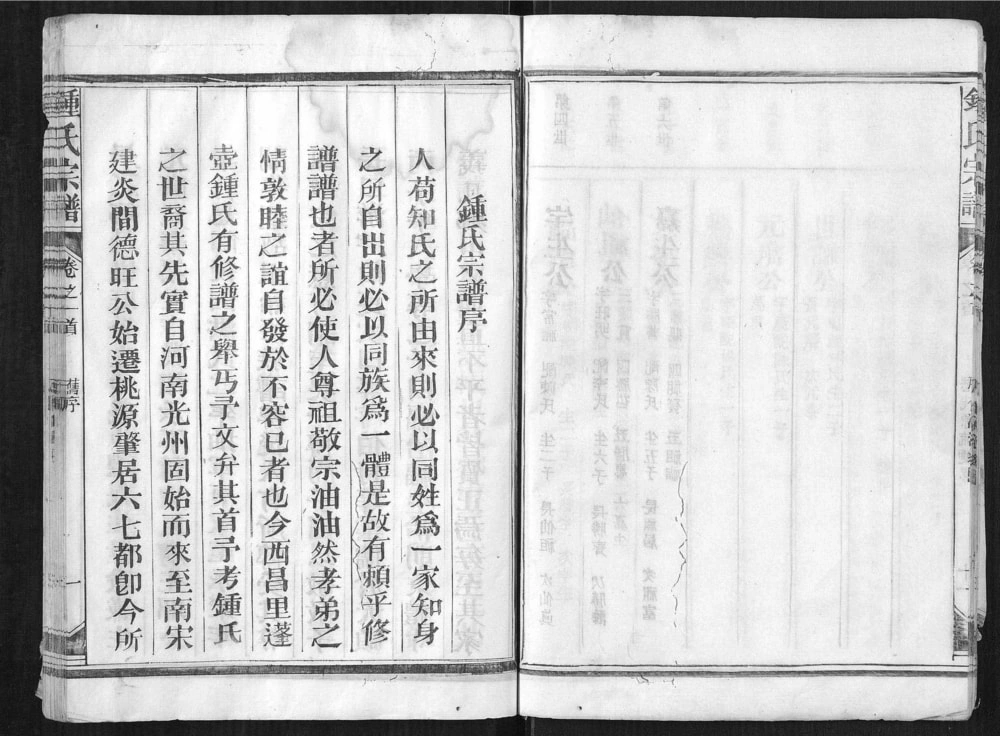 鍾氏宗譜
鍾氏宗譜序
人苟知氏之所由來則必以同姓爲一家知身
之所自出則必以同族爲一體是故有賴乎修
譜譜也者所必使人尊祖敬宗油油然孝弟之
情敦睦之誼自發於不容已者也今西昌里蓬
壺鍾氏有修譜之舉丐予文弁其首予考鍾氏
之世裔其先實自河南光州固始而來至南宋
建炎間德旺公始遷桃源肇居六七都卽今所
鍾氏宗譜
卷之首
舊序
一